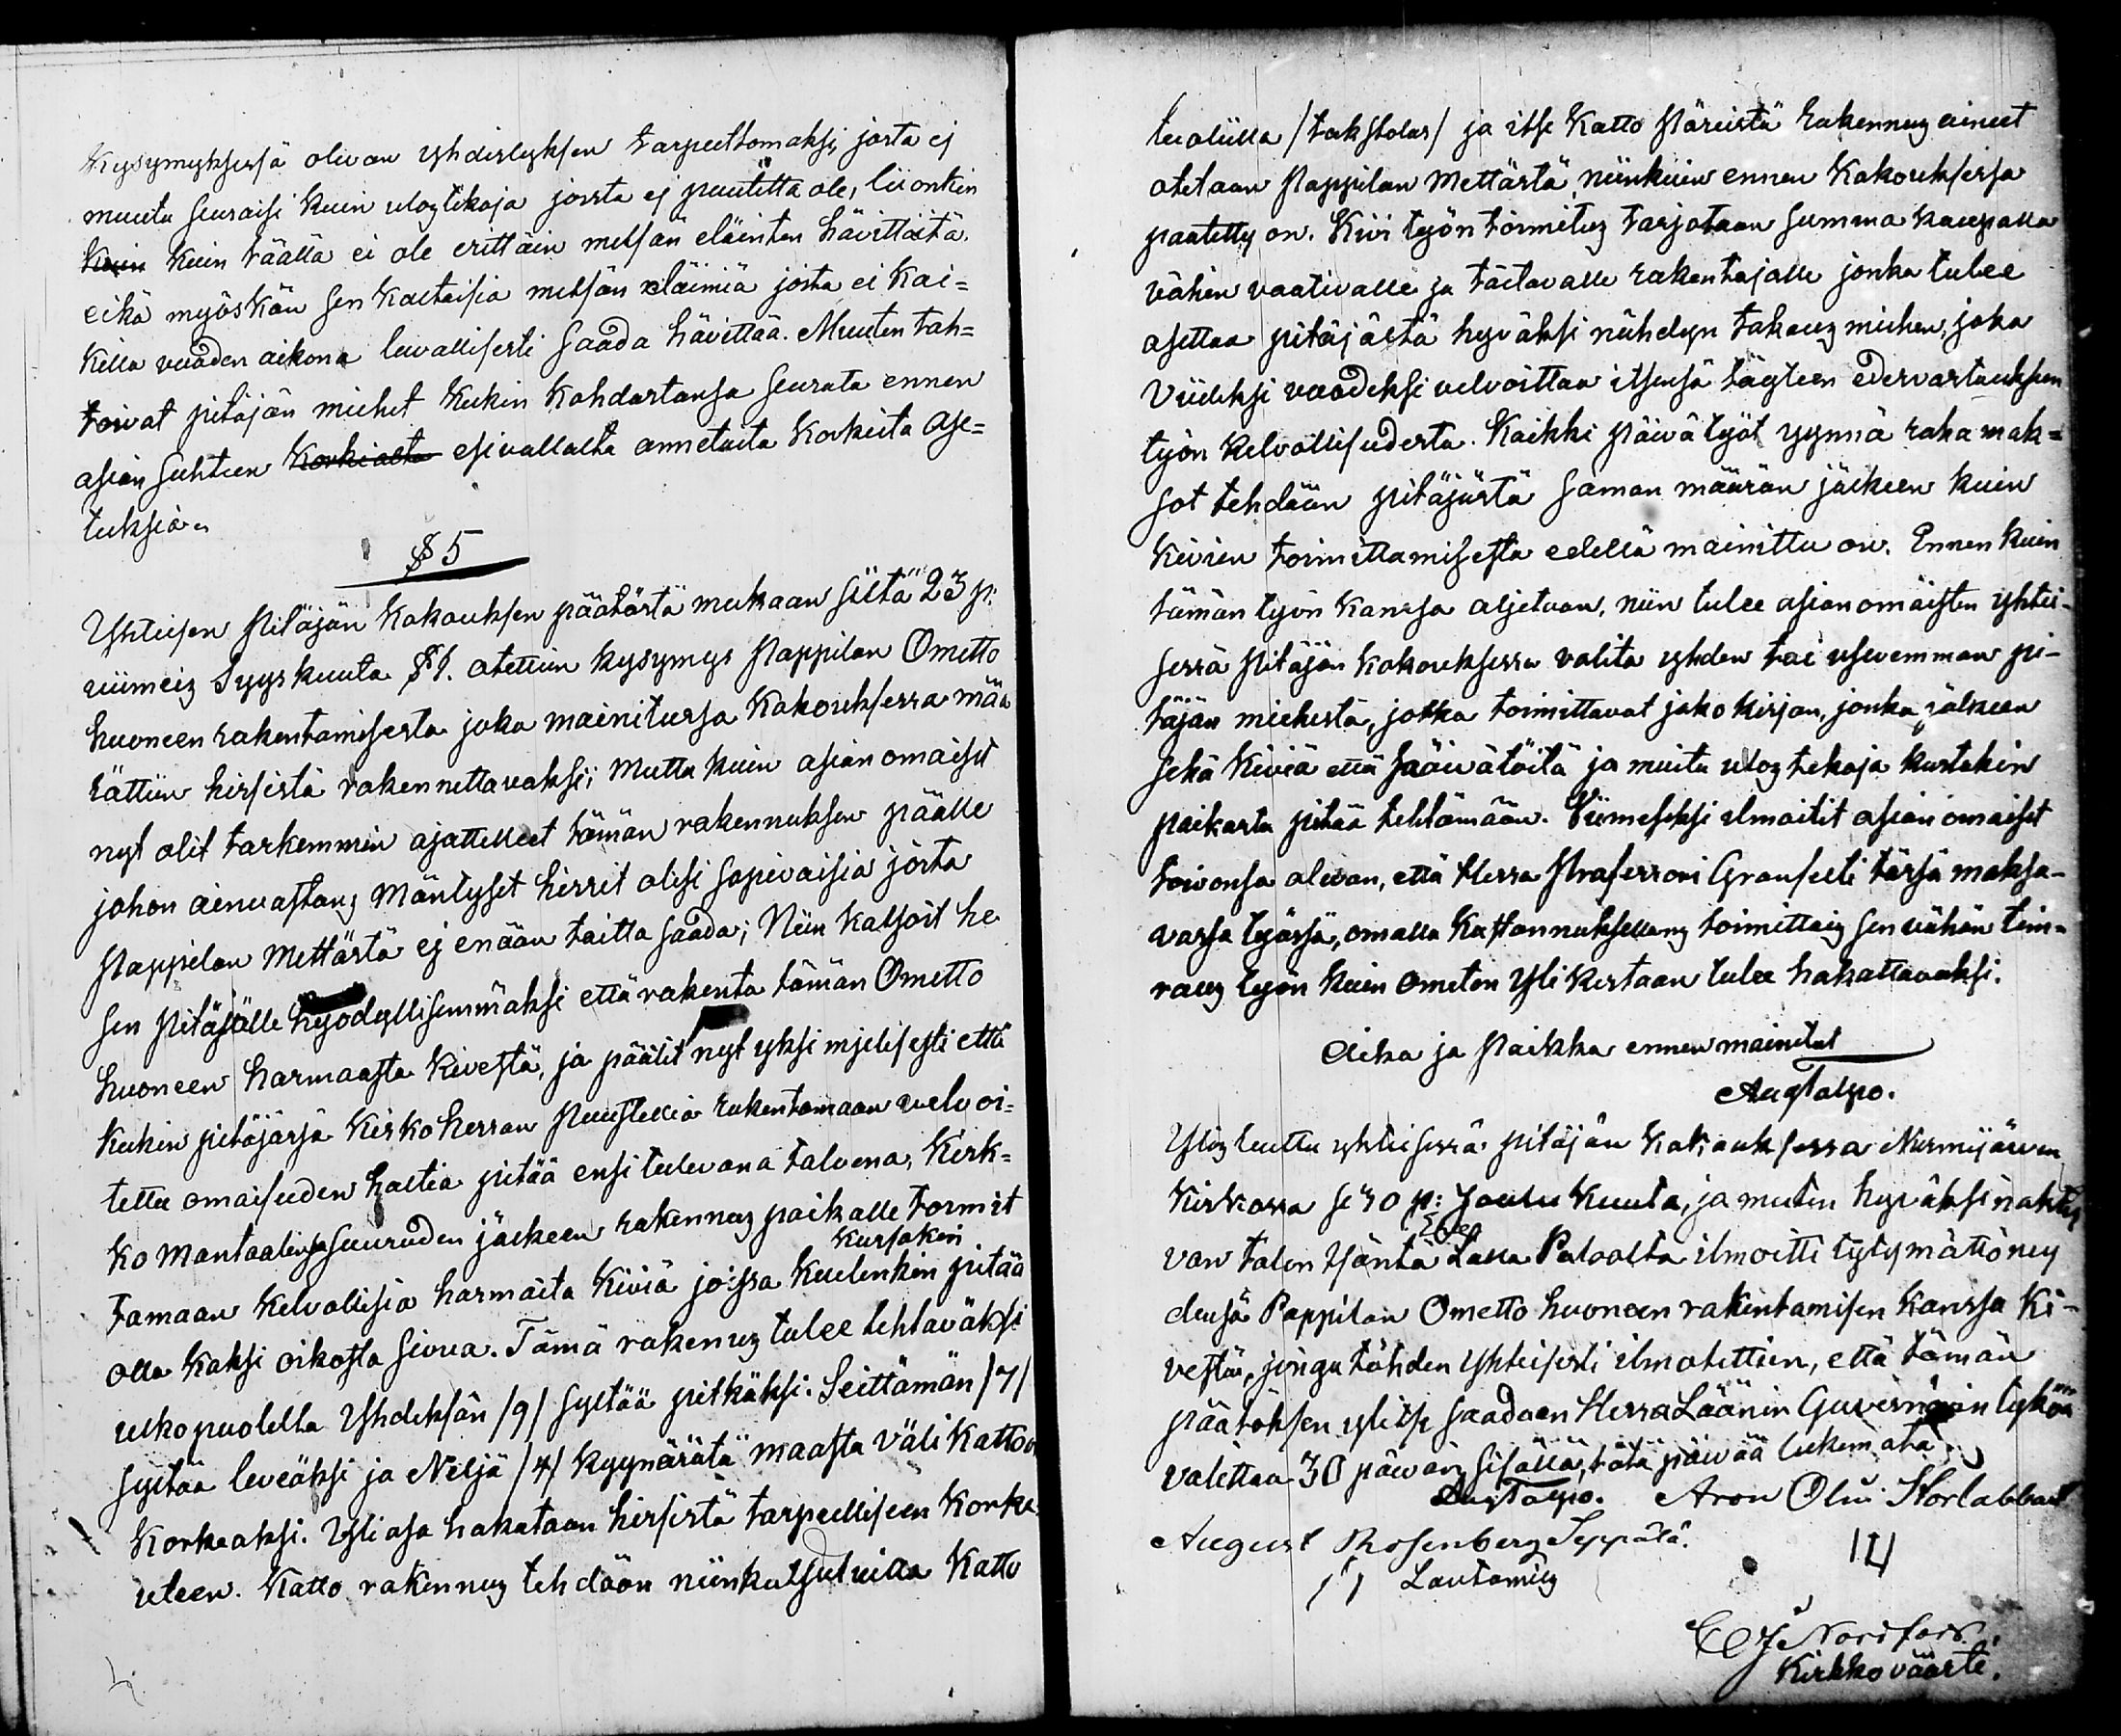 Kysymyksesä olevan yhdistyksen tarpeettomaksi, josta ej
muuta seuraisi kuin ulostekoja joista ej puutetta ole, liiontkin
kuin kuin täällä ei ole erittäin metsän eläinten hävittäitä
eikä myöskän sen kaltaisia metsän eläimiä joita ei kai=
killa vuoden aikona luvallisesti saada hävittää. Muuten tah=
toivat pitäjän miehet kukin kohdastansa seurata ennen
asian suhteen korkialta esivallalta annetuita korkeita ase=
tuksia.
§ 5
Yhteisen Pitäjän kokouksen päätöstä mukaan siitä 23 p:
viimeis Syyskuuta § 1. otettiin kysymys Pappilan Ometto
huoneen rakentamisesta joka mainitussa kokouksessa mää
rättiin hirsistä rakennettavaksi; Mutta kuin asian omaiset
nyt olit tarkemmin ajatelleet tämän rakennuksen päälle
johon ainuastans Mäntyset hirret olisi sopivaisia joita
Pappilan Mettästä ej enään taitta saada; Niin katsoit he
sen Pitäjälle hyödyllisemmäksi että rakenta tämän Ometto
huoneen harmaasta kivestä, ja päätit nyt yksi mjelisesti että
kukin pitäjäsä Kirkoherran Puustellia rakentamaan velvoi=
tettu omaisuden haltia pitää ensi tulevana talvena, kirk=
ko mantaalinsa suuruden jälkeen rakennus paikalle toimit
tamaan kelvollisia harmaita kiviä joissa kuitenkin kussakin pitää
olla kaksi oikosta sivua. Tämä rakenus tulee tehtäväksi
ulkopuolella Yhdeksän /9/ syltää pitkäksi. Seittämän /7/
syltää leveäksi ja Neljä /4/ kyynärätä maasta väli kattoon
korkeaksi. Yli osa hakataan hirsistä tarpeelliseen korke
uteen. Katto rakennus tehdään niinkutsutuilla Katto
tuoliilla /takstolar/ ja itse Katto Päreistä rakennus aineet
otetaan Pappilan Mettästä niinkuin ennen Kokouksesa
päätetty on. Kivi työn toimitus tarjotaan summa kaupalla
vähin vaativalle ja taitavalle rakentajalle jonka tulee
asettaa pitäjästä hyväksi nähdyn takaus miehen, joka
Viideksi vuodeksi velvoittaa itsensä täyteen edesvastauksen
työn kelvollisudesta. Kaikki päivä työt ynnä raha mak=
sot tehdään pitäjästä saman määrän jälkeen kuin
kivien toimittamisesta edellä mainittu on. Ennen kuin
tämän työn kanssa aljetaan, niin tulee asianomaisten yhtei-
sessä Pitäjän kokouksessa valita yhden tai usemman pi-
täjän miehestä, jotka toimittavat jako kirjan, jonka jälkeen
sekä kiviä että päivätöitä ja muita ulostekoja kustakin
paikasta pitää tehtämään. Viimeseksi ilmoitit asian omaiset
toivonsa olevan, että Herra Professori Granfelti tässä maksa-
vassa työssä, omalla kustannuksellans toimittais sen vähän tim-
raus työn kuin Ometon yli kertaan tulee hakattavaksi.
Aika ja Paikka ennen mainitut
Aug Talpo.
Ylös luettu yhteisessä pitäjän kokouksessa Nurmijärven
kirkossa se 30 p: Joulu Kuuta, ja muuten hyväksi nähtiin
van talon Isäntä Lalla Paloalta ilmoitti tytymättömy
densä Pappilan Ometto huoneen rakentamisen kanssa ki-
vestä, jonga tähden Yhteisesti ilmotettiin, että tämän
päätöksen ylitse saadaan Herra Läänin Guvernörin tykön
valittaa 30 päivän sisällä, tätä päivää lukemata.
Aug Talpo. Aron Olvi
August Rosenberg Seppälä.
Lautamies
Kirkkovääri.